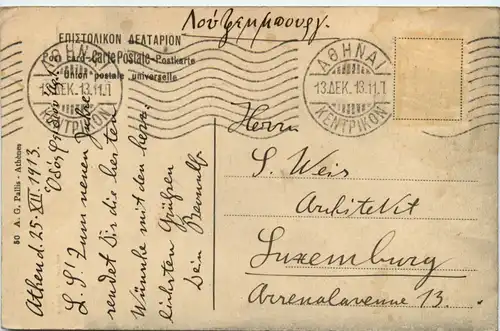 Λουξεμμπουργ.
ΕΠΙΣΤΟΛΙΚΟΝ ΔΕΛΤΑΡΙΟΝ
Post Card-Carte Postale-Postkarte
Union postale universelle
ΑΘΗΝΑΙ
13.ΔΕΚ.13.11.
ΚΕΝΤΡΙΚΟΝ
ΑΘΗΝΑΙ
13.ΔΕΚ.13.11.
ΚΕΝΤΡΙΚΟΝ
50 A. G. Pallis - Athènes
Athen d. 25. XII. 1913.
L. S! Zum neuen Jahre
sendet Dir die besten
Wünsche mit den herz-
lichsten Grüßen
Dein
Herrn
S. Weis
Architekt
Luxemburg
Arsenalavenue 13.